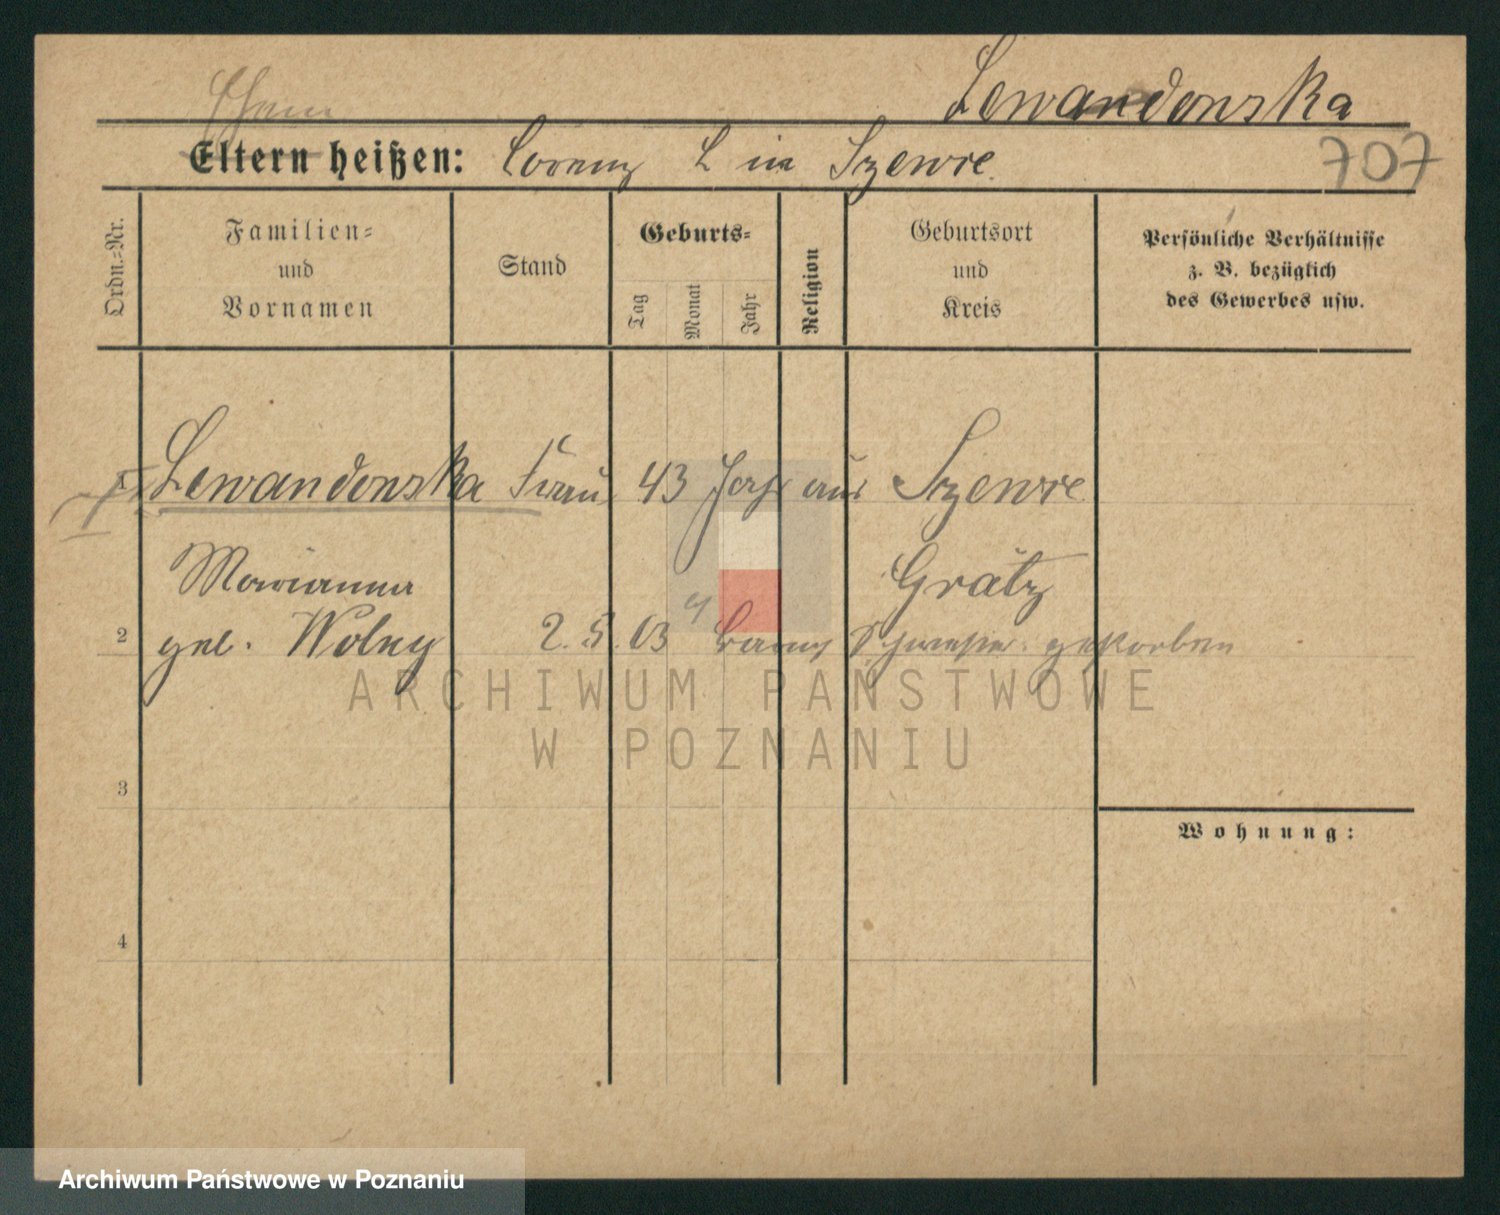 Lewandowska
Ehem
Eltern heißen: Lorenz L in Szewce.
707
Ordn.-Nr.
Familien-
und
Vornamen
Stand
Geburts-
Tag
Monat
Jahr
Religion
Geburtsort
und
Kreis
Persönliche Verhältnisse
z. B. bezüglich
des Gewerbes usw.
Lewandowska Frau 43 Jahr aus Szewce
Marianna Grätz
2 geb. Wolny 2. 5. 03 Schwester gestorben
ARCHIWUM PAŃSTWOWE
W POZNANIU
3
Wohnung:
4
Archiwum Państwowe w Poznaniu